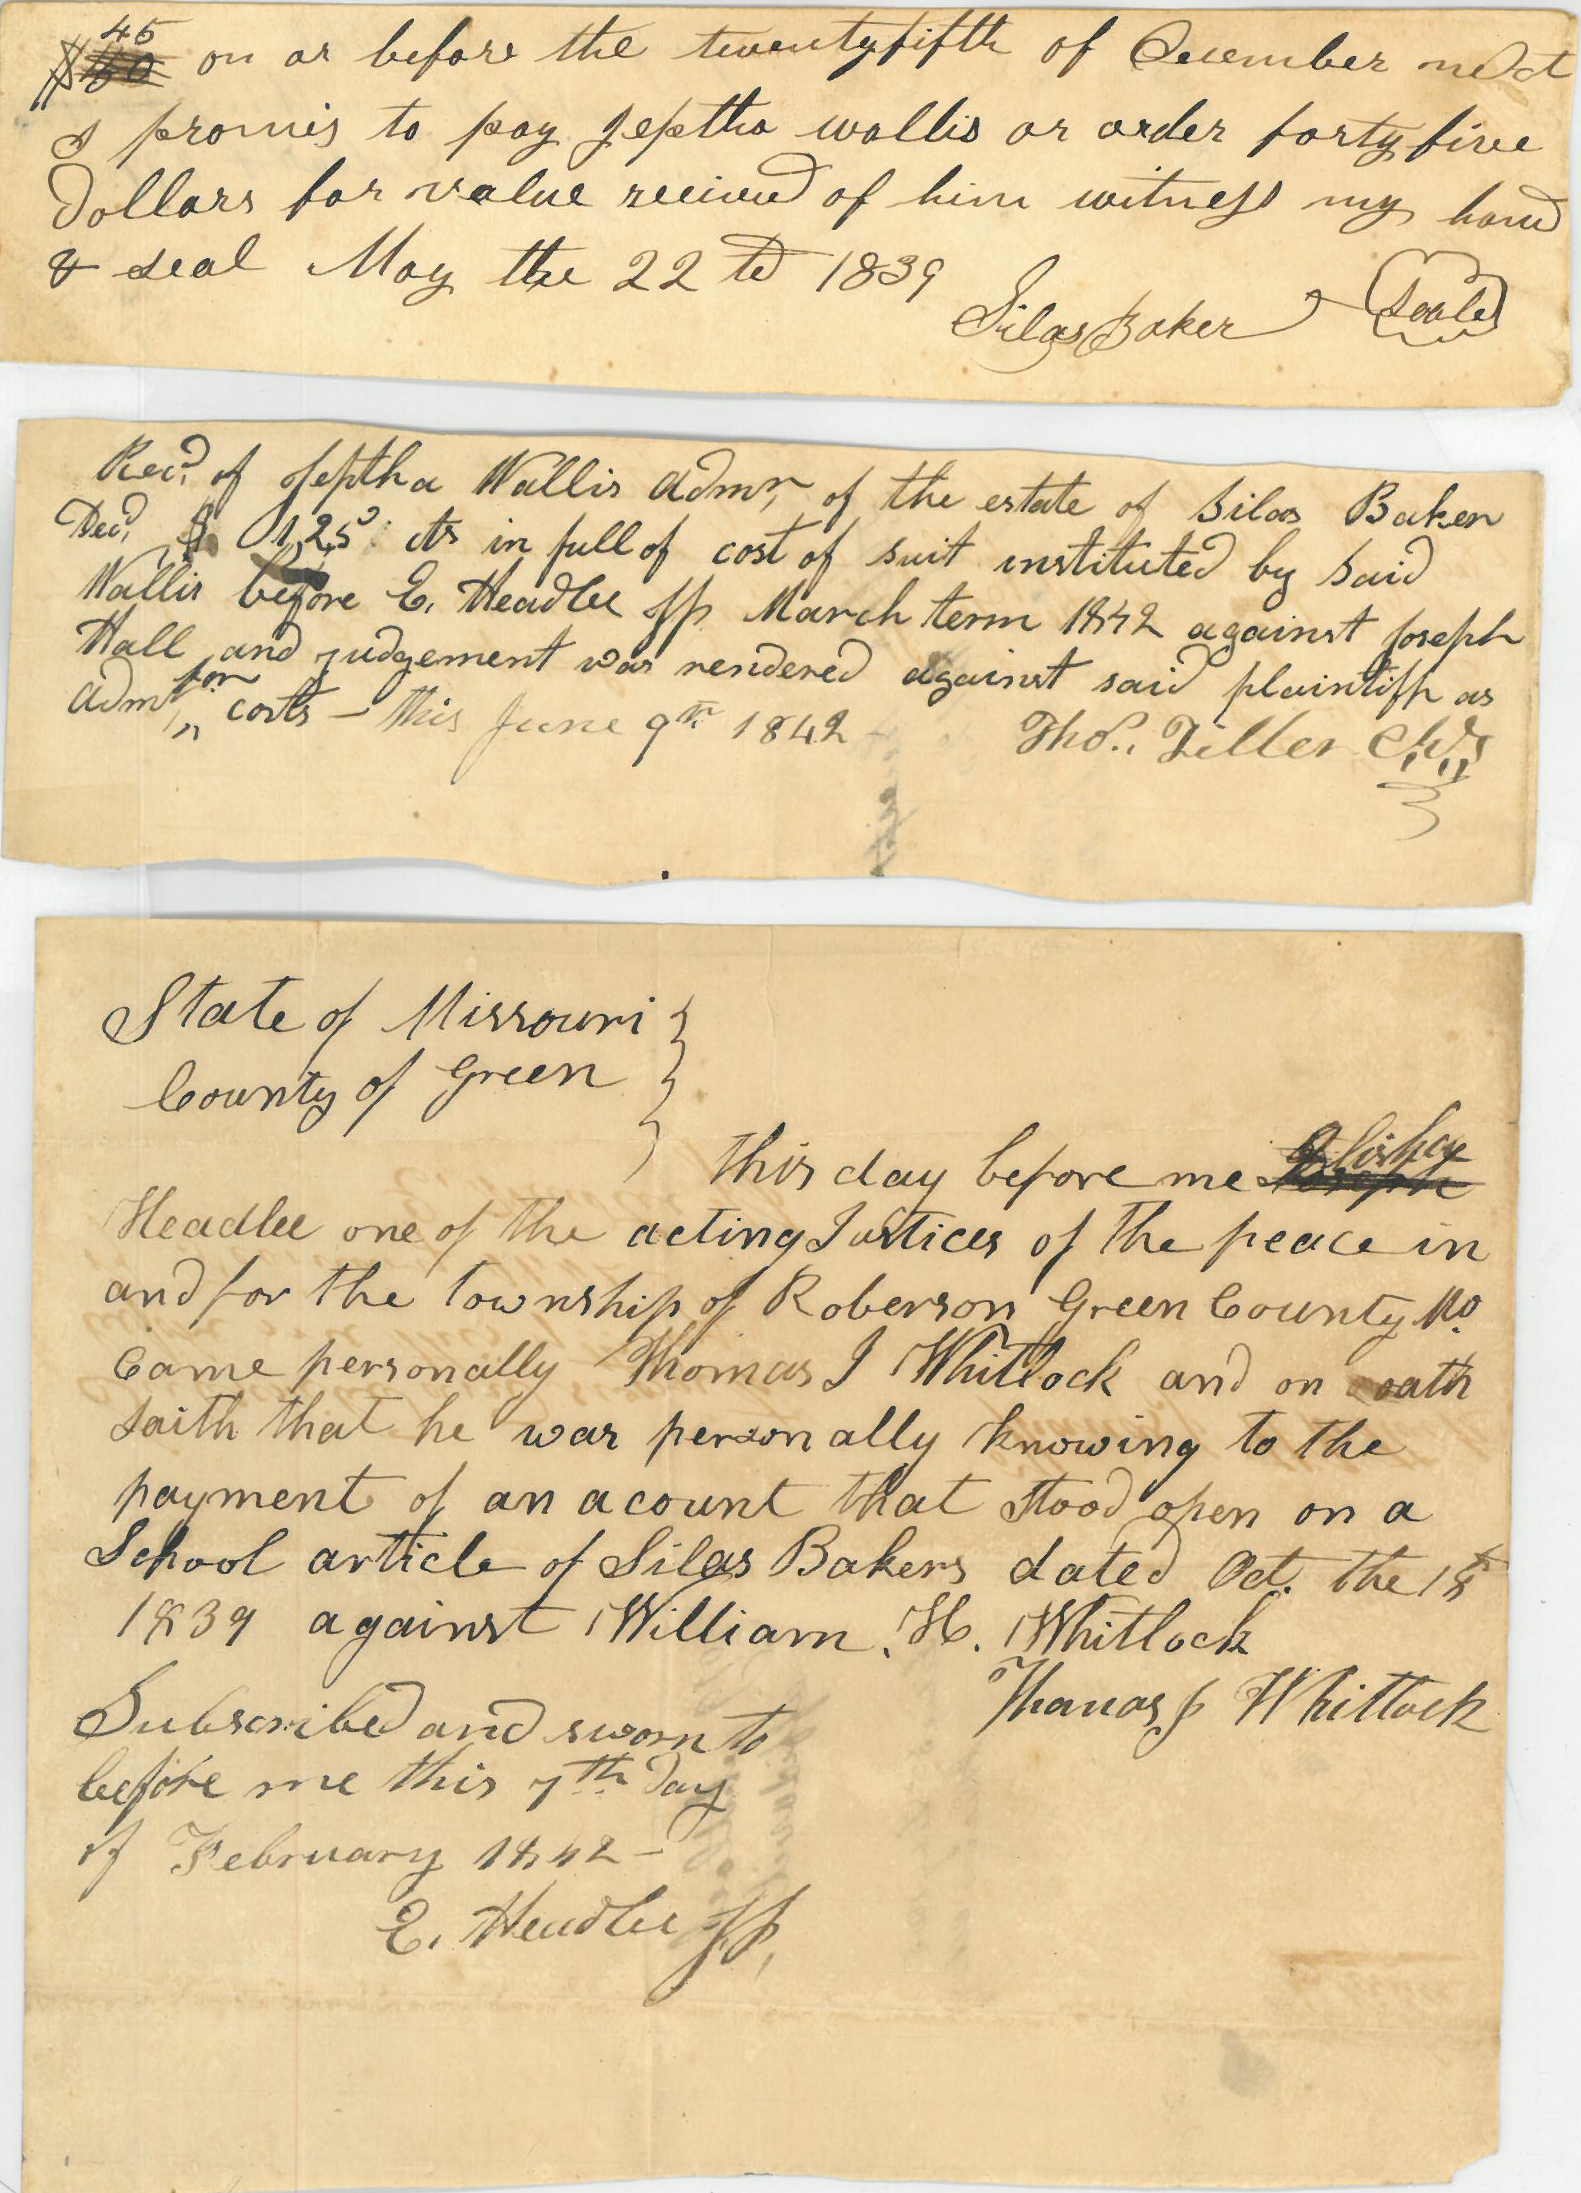 $45 on or before the twentyfifth of December next
I promis to pay Jeptha wallis or order forty five
Dollars for value received of him witness my hand
& seal May the 22td 1839
Silas Baker Seale
Recd. of Jeptha Wallis Admr, of the estate of Silas Baker
Decd, $ 1,25 cts in full of cost of suit instituted by said
Wallis before E. Headlee JP March term 1842 against Joseph
Hall and judgement was rendered against said plaintiff as
Admr for costs — this June 9th 1842 —
Thos. Tiller
State of Missouri
County of Green
this day before me Elishey
Headlee one of the acting Justices of the peace in
and for the township of Roberson Green County Mo.
Came personally Thomas J Whitlock and on oath
saith that he was personally knowing to the
payment of an acount that stood open on a
School article of Silas Bakers dated Oct. the 18th
1839 against William. H. Whitlock
Thomas J Whitlock
Subscribed and sworn to
before me this 7th Day
of February 1842 —
E. Headlee JP,